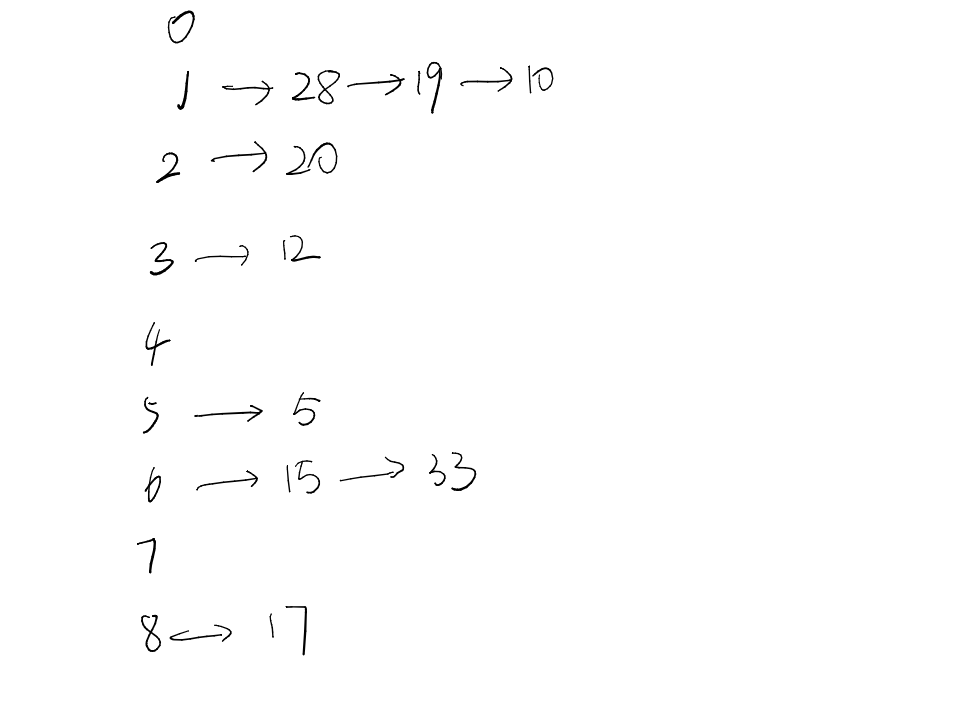 0
1 → 28 → 19 → 10
2 → 20
3 → 12
4
5 → 5
6 → 15 → 33
7
8 ↔ 17